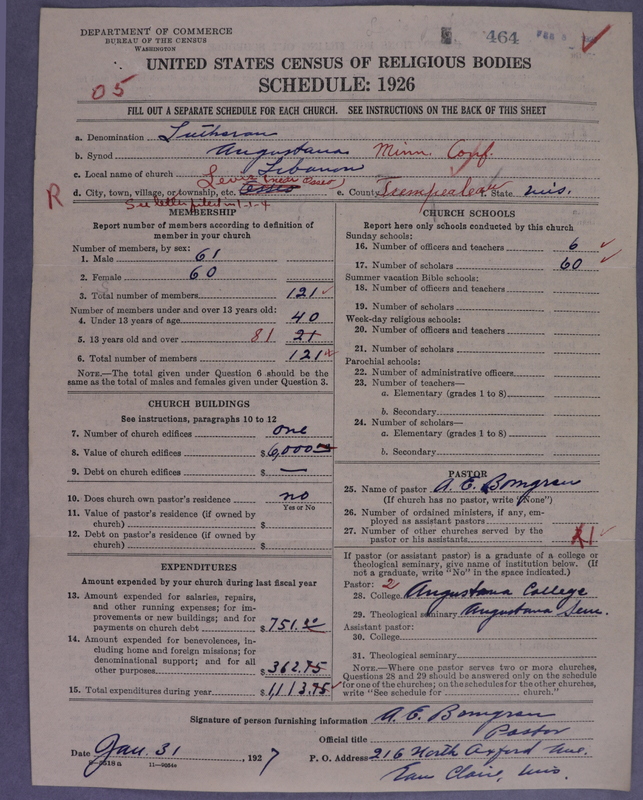 DEPARTMENT OF COMMERCE
BUREAU OF THE CENSUS
WASHINGTON
464 FEB
UNITED STATES CENSUS OF RELIGIOUS BODIES
05
SCHEDULE: 1926
FILL OUT A SEPARATE SCHEDULE FOR EACH CHURCH. SEE INSTRUCTIONS ON THE BACK OF THIS SHEET
a. Denomination Lutheran
b. Synod Augustana Minn. Conf.
c. Local name of church Lebanon
R d. City, town, village, or township, etc. Levis (near Osseo) Osseo e. County Trempealeau f. State Wis.
See letter filed in 1-1-4
MEMBERSHIP
Report number of members according to definition of member in your church
Number of members, by sex:
1. Male 61
2. Female 60
3. Total number of members 121
Number of members under and over 13 years old:
4. Under 13 years of age 40
5. 13 years old and over 81 21
6. Total number of members 121
NOTE.—The total given under Question 6 should be the same as the total of males and females given under Question 3.
CHURCH BUILDINGS
See instructions, paragraphs 10 to 12
7. Number of church edifices one
8. Value of church edifices $6,000
9. Debt on church edifices $ —
10. Does church own pastor's residence no
Yes or No
11. Value of pastor's residence (if owned by church) $
12. Debt on pastor's residence (if owned by church) $
EXPENDITURES
Amount expended by your church during last fiscal year
13. Amount expended for salaries, repairs, and other running expenses; for improvements or new buildings; and for payments on church debt $751.20
14. Amount expended for benevolences, including home and foreign missions; for denominational support; and for all other purposes $362.75
15. Total expenditures during year $1,113.95
CHURCH SCHOOLS
Report here only schools conducted by this church
Sunday schools:
16. Number of officers and teachers 6
17. Number of scholars 60
Summer vacation Bible schools:
18. Number of officers and teachers
19. Number of scholars
Week-day religious schools:
20. Number of officers and teachers
21. Number of scholars
Parochial schools:
22. Number of administrative officers
23. Number of teachers—
a. Elementary (grades 1 to 8)
b. Secondary
24. Number of scholars—
a. Elementary (grades 1 to 8)
b. Secondary
PASTOR
25. Name of pastor A. E. Bomgren
(If church has no pastor, write "None")
26. Number of ordained ministers, if any, employed as assistant pastors
27. Number of other churches served by the pastor or his assistants 1
If pastor (or assistant pastor) is a graduate of a college or theological seminary, give name of institution below. (If not a graduate, write "No" in the space indicated.)
Pastor: 2
28. College Augustana College
29. Theological seminary Augustana Sem.
Assistant pastor:
30. College
31. Theological seminary
NOTE.—Where one pastor serves two or more churches, Questions 28 and 29 should be answered only on the schedule for one of the churches; on the schedules for the other churches, write "See schedule for church."
Signature of person furnishing information A. E. Bomgren
Official title Pastor
Date Jan. 31, 1927 P. O. Address 216 North Oxford Ave.
11—9054 Eau Claire, Wis.